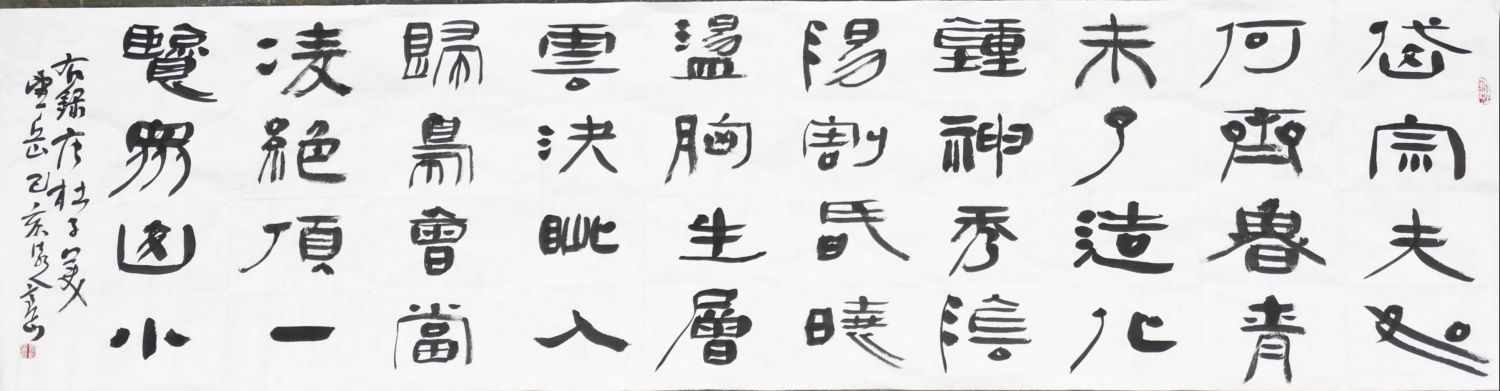 岱宗夫如
何齊魯青
未了造化
鍾神秀陰
陽割昏曉
盪胸生層
雲決眦入
歸鳥會當
凌絕頂一
覽眾山小
右錄唐杜子美
望岳己亥